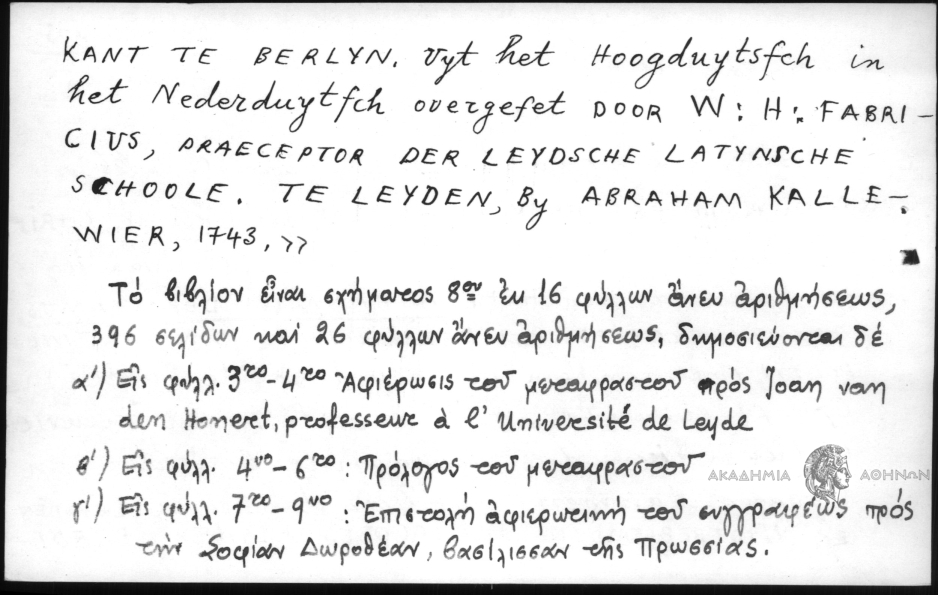 KANT TE BERLYN. Uyt het Hoogduytsfch in
het Nederduytfch overgefet DOOR W: H: FABRI-
CIUS, PRAECEPTOR DER LEYDSCHE LATYNSCHE
SCHOOLE. TE LEYDEN, By ABRAHAM KALLE-
WIER, 1743, »
Τό βιβλίον εἶναι σχήματος 8ον ἐκ 16 φύλλων ἄνευ ἀριθμήσεως,
396 σελίδων καί 26 φύλλων ἄνευ ἀριθμήσεως, δημοσιεύονται δέ
α') Εἰς φύλλ. 3ro-4ro Ἀφιέρωσις τοῦ μεταφραστοῦ πρός Joan van
den Honert, professeur à l'Université de Leyde
β') Εἰς φύλλ. 4vo-6ro: Πρόλογος τοῦ μεταφραστοῦ
γ') Εἰς φύλλ. 7ro-9vo: Ἐπιστολή ἀφιερωτική τοῦ συγγραφέως πρός
τήν Σοφίαν Δωροθέαν, βασίλισσαν τῆς Πρωσσίας.
ΑΚΑΔΗΜΙΑ ΑΘΗΝΩΝ